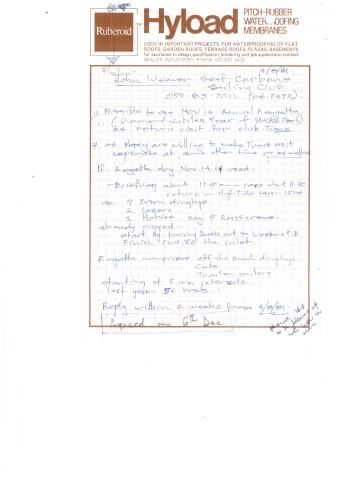 Ruberoid
™
Hyload
PITCH-RUBBER
WATER OOFING
MEMBRANES
USED IN IMPORTANT PROJECTS FOR WATERPROOFING OF FLAT
ROOFS, GARDEN ROOFS, TERRACE ROOFS, PLAZAS, BASEMENTS
For assistance in design, specification, tendering and job supervision contact
SEALEX INDUSTRIES PHONE
4/8/81
John Weaver Seat Cerberus
Sailing CLUB
059-83-7011 (ext 7492)
1) Possible to use NOV 14 Annual Regatta
(Diamond Jubilee Year of HMAS Cerb)
as return visit for club.
are willing to make visit
seperate at some other time or as well
If Regatta day Nov 14 is used.
- Briefing about 10.00am race start 11.30
return on High Tide
use 7 dinghys
2 Lasers
say 5 Boats crews
already rigged -
start by towing boats out to Western P.B
Finish inside the inlet.
Regatta comprises off the Beach dinghys
Cats
Trailer sailers
starting at 5 min intervals
last year 50 boats.
Reply within 2 weeks from 4/8/81
Agreed on 6th Dec